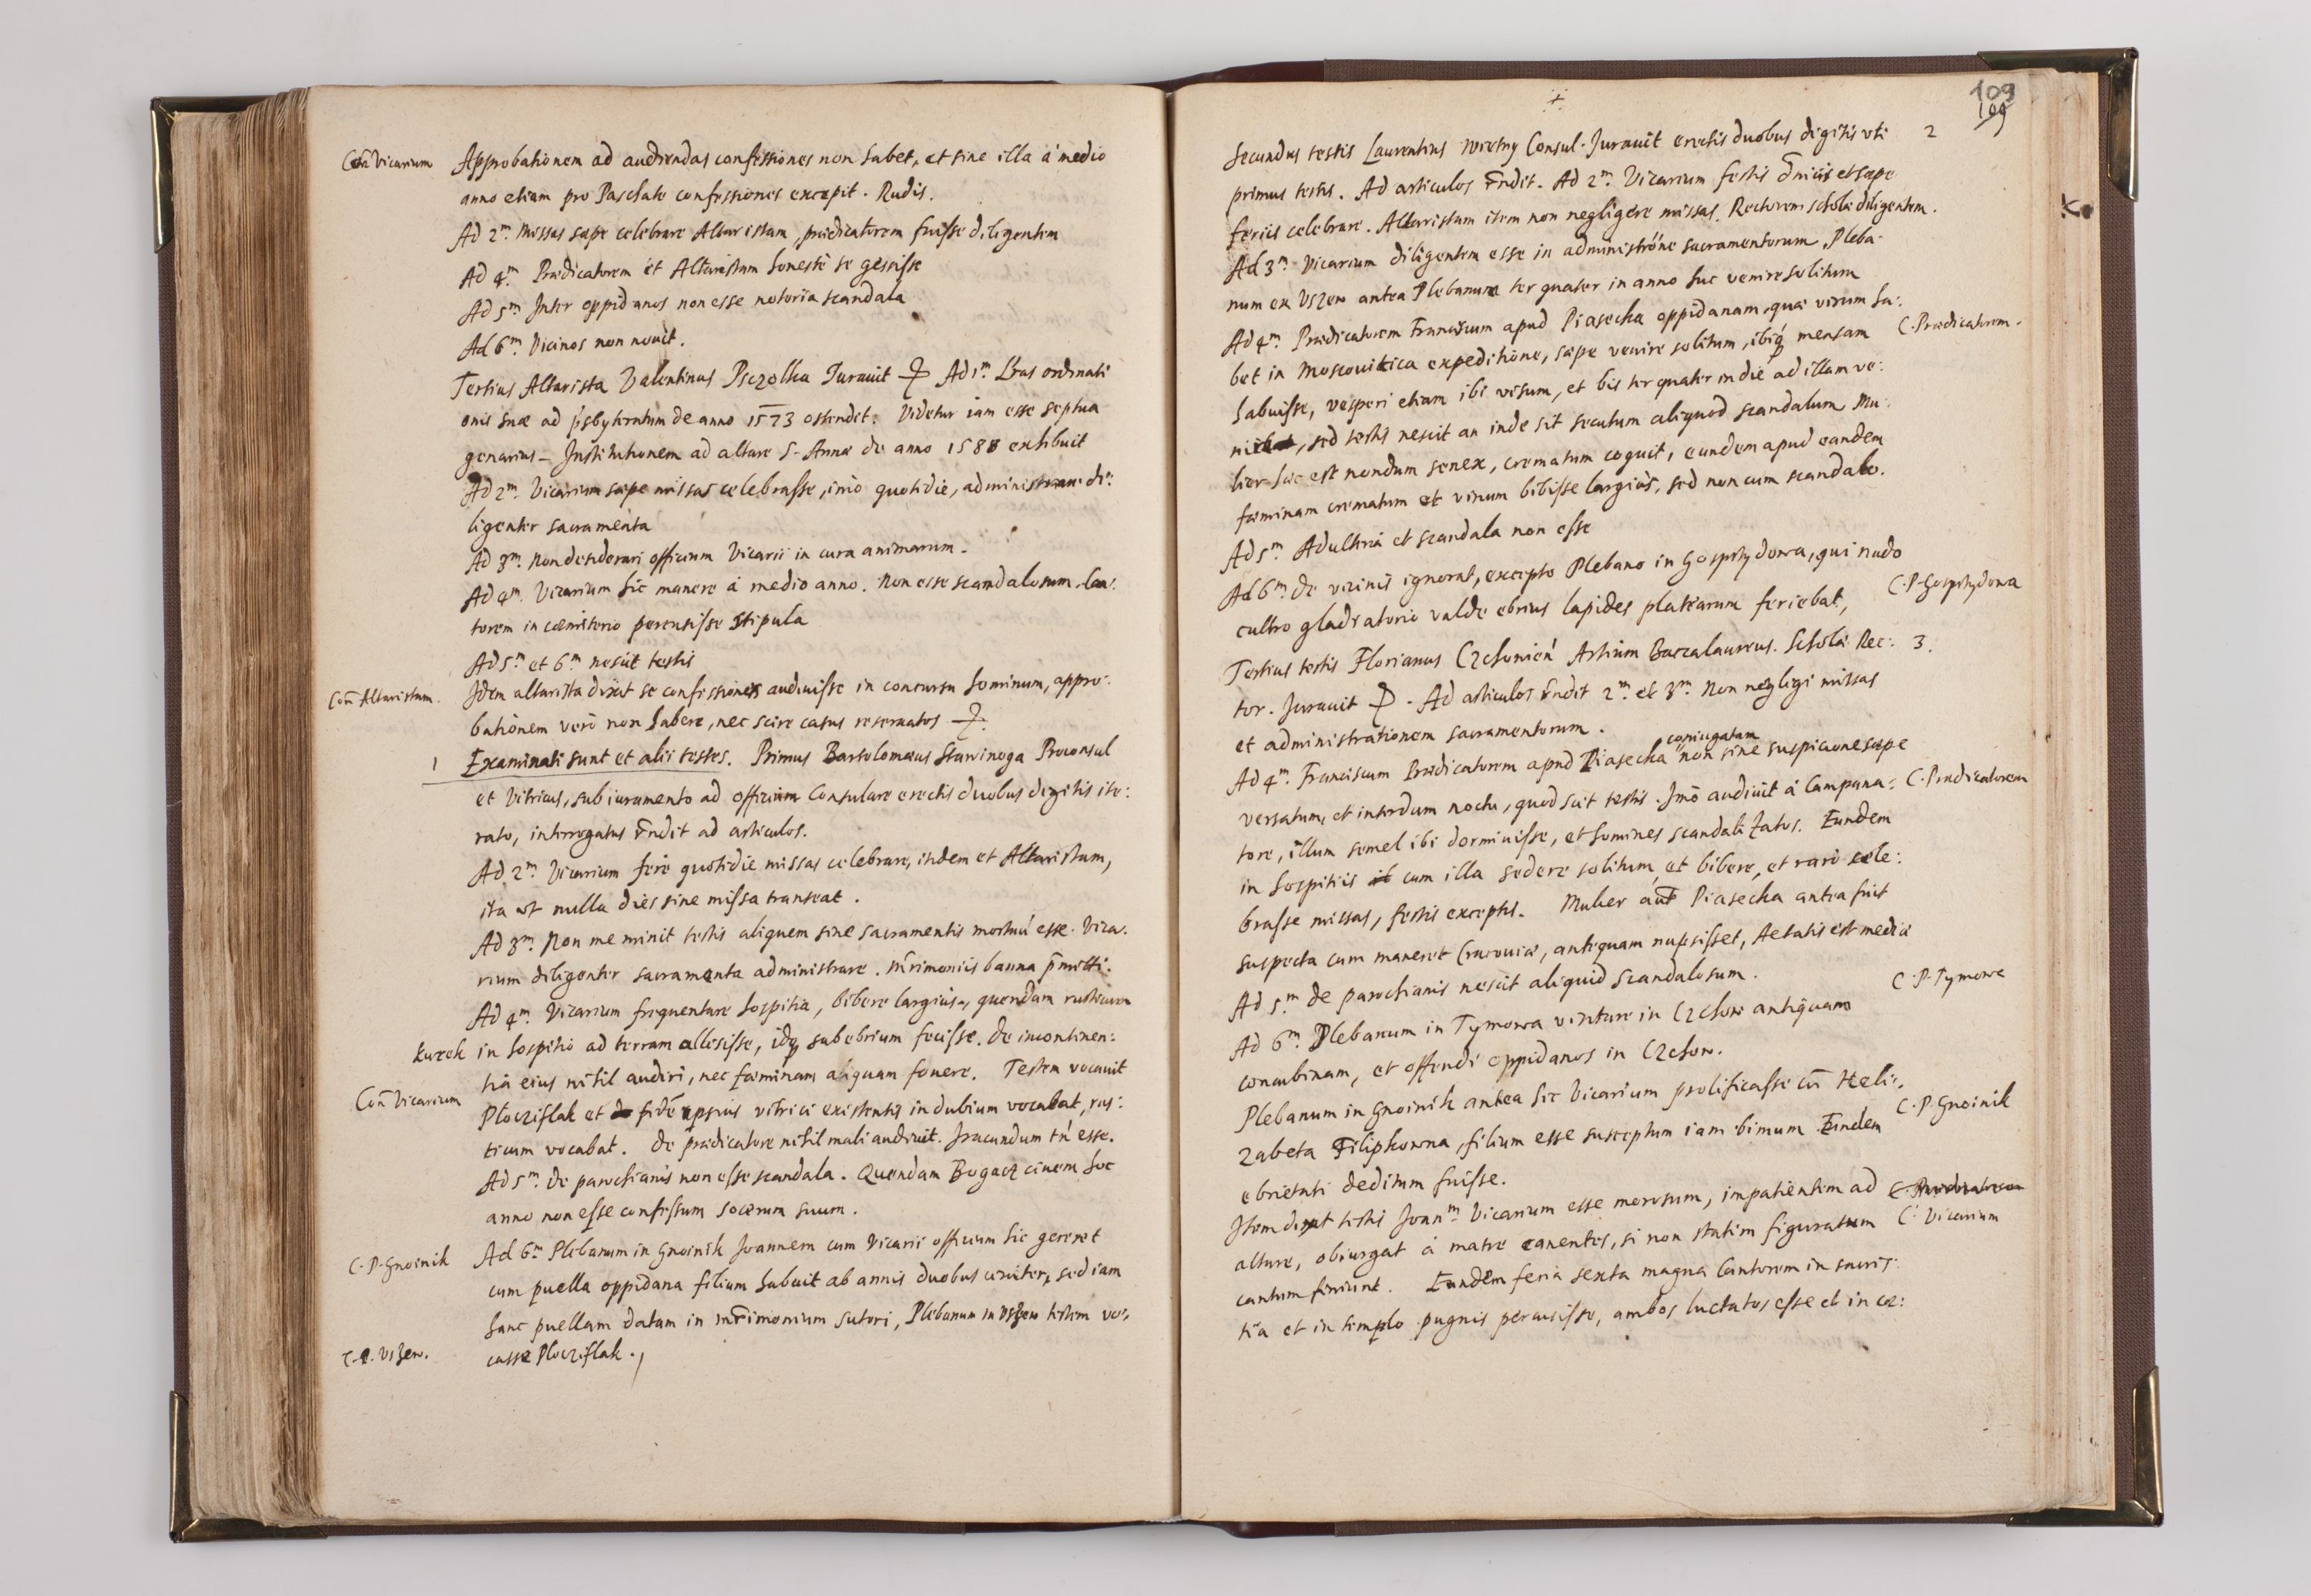 Con̄ Vicarium
Approbationem ad audiendas confessiones non habet, et sine illa à medio
anno etiam pro Paschate confessiones excepit. Rudis.
Ad 2m. Missas sæpe celebrare Altaristam, prædicatorem fuisse diligentem
Ad 4m. Prædicatorem et Altaristam honestè se gessisse
Ad 5m. Inter oppidanos non esse notoria scandala
Ad 6m. Vicinos non novit.
Tertius Altarista Valentinus Psczolka Iurauit Ad 1m. Lras ordinati
onis suæ ad p̄sbyteratum de anno 1573 ostendit. Videtur iam esse septua
genarius. Institutionem ad altare S. Annæ de anno 1588 exhibuit
Ad 2m. Vicarium sæpe missas celebrasse, imò quotidie, administrare di:
ligenter sacramenta
Ad 3m. Non desiderari officium Vicarii in cura animarum.
Ad 4m. Vicarium hic manere à medio anno. Non esse scandalosum. Can:
torem in cœmiterio percussisse stipula
Ad 5m. et 6m nescit testis
Con̄ Altaristam.
Idem altarista dixit se confessiones audivisse in concursu hominum, appro:
bationem verò non habere, nec scire casus reservatos
1
Examinati sunt et alii testes. Primus Bartolomæus Stawinoga Proconsul
et Vitricus, sub iuramento ad officium Consulare erectis duobus digitis ite:
rato, interrogatus r̄ndit ad articulos.
Ad 2m. Vicarium ferè quotidie missas celebrare, itidem et Altaristam,
ita ut nulla dies sine missa transeat.
Ad 3m. Non meminit testis aliquem sine sacramentis mortuū esse. Vica:
rium diligenter sacramenta administrare. Mr̄imoniis banna p̄mitti.
Ad 4m. Vicarium frequentare hospitia, bibere largius, quendam rusticum
Kurek in hospitio ad terram allisisse, idq́ subebrium fecisse. De incontinen:
tia eius nihil audiri, nec fœminam aliquam fouere. Testem vocauit
Con̄ Vicarium
Płocziflak et fidē ipsius vitrici existentis in dubium vocabat, rus:
ticum vocabat. De prædicatore nihil mali audiuit. Iracundum tn̄ esse.
Ad 5m. De parochianis non esse scandala. Quendam Bogacz ciuem hoc
anno non esse confessum socerum suum.
C. P. Gnoinik
Ad 6m. Plebanum in Gnoinik Joannem cum Vicarii officium hic gereret
cum puella oppidana filium habuit ab annis duobus circiter, sed iam
hanc puellam datam in mr̄imonium sutori, Plebanum in Uszew testem vo:
C. P. Uszew.
casse Płocziflak.
+
109
109
Secundus testis Laurentius Consul. Jurauit erectis duobus digitis uti
2
primus testis. Ad articulos r̄ndit. Ad 2m. Vicarium festis d̄nicis et sæpe
feriis celebrare. Altaristam item non negligere missas. Rectorem scholæ diligentem.
Ad 3m. Vicarium diligentem esse in administr̄one sacramentorum. Pleba:
num ex Uszew antea Plebanum ter quater in anno huc venire solitum
Ad 4m. Prædicatorem Franciscum apud Piasecka oppidanam, quæ virum ha:
C. Prædicatorem.
bet in Moscouitica expeditione, sæpe venire solitum, ibiq́ mensam
habuisse, vesperi etiam ibi visum, et bis ter quater in die ad illam ve:
, sed testis nescit an inde sit secutum aliquod scandalum. Mu:
lier hæc est nondum senex, crematum coquit, eundem apud eandem
fœminam crematum et vinum bibisse largiùs, sed non cum scandalo.
Ad 5m. Adulteria et scandala non esse
Ad 6m. De vicinis ignorat, excepto Plebano in Gosprzydowa, qui nudo
C. P. Gosprzydowa
cultro gladiatorio valde ebrius lapides platearum feriebat,
Tertius testis Florianus Czchouien̄ Artium Baccalaureus. Scholæ Rec:
3.
tor. Jurauit. Ad articulos r̄ndit 2m. et 3m. Non negligi missas
et administrationem sacramentorum.
Ad 4m. Franciscum Prædicatorem apud Piasecka coniugatam non sine suspicione sæpe
C. Prædicatorem
versatum, et interdum noctu, quod scit testis. Imò audiuit à Campana:
tore, illum semel ibi dormiuisse, et homines scandalizatos. Eundem
in hospitiis cum illa sedere solitum, et bibere, et rarò cele:
brasse missas, festis exceptis. Mulier aūt Piasecka antea fuit
suspecta cum maneret Cracouiæ, antequam nupsisset, Aetatis est mediæ
Ad 5m. De parochianis nescit aliquid scandalosum.
C. P. Tymowa
Ad 6m. Plebanum in Tymowa visitare in Czchow antiquam
concubinam, et offendi oppidanos in Czchow.
Plebanum in Gnoinik antea hic Vicarium prolificasse cū Heli:
C. P. Gnoinik
zabeta Filipkowna, filium esse susceptum iam bimum. Eundem
ebrietati deditum fuisse.
Item dixit testis Joannm. Vicarium esse morosum, impatientem ad
C. Vicarium
altare, obiurgat à matre canentes, si non statim figuratum
cantum finiunt. Eundem feria sexta magna Cantorem in sacris:
tia et in templo pugnis percussisse, ambos luctatos esse et in cœ: